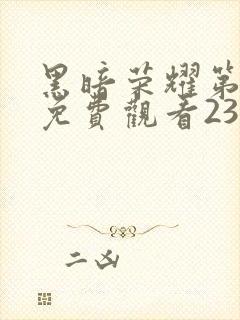 黑暗荣耀第
免費觀看23
二凶